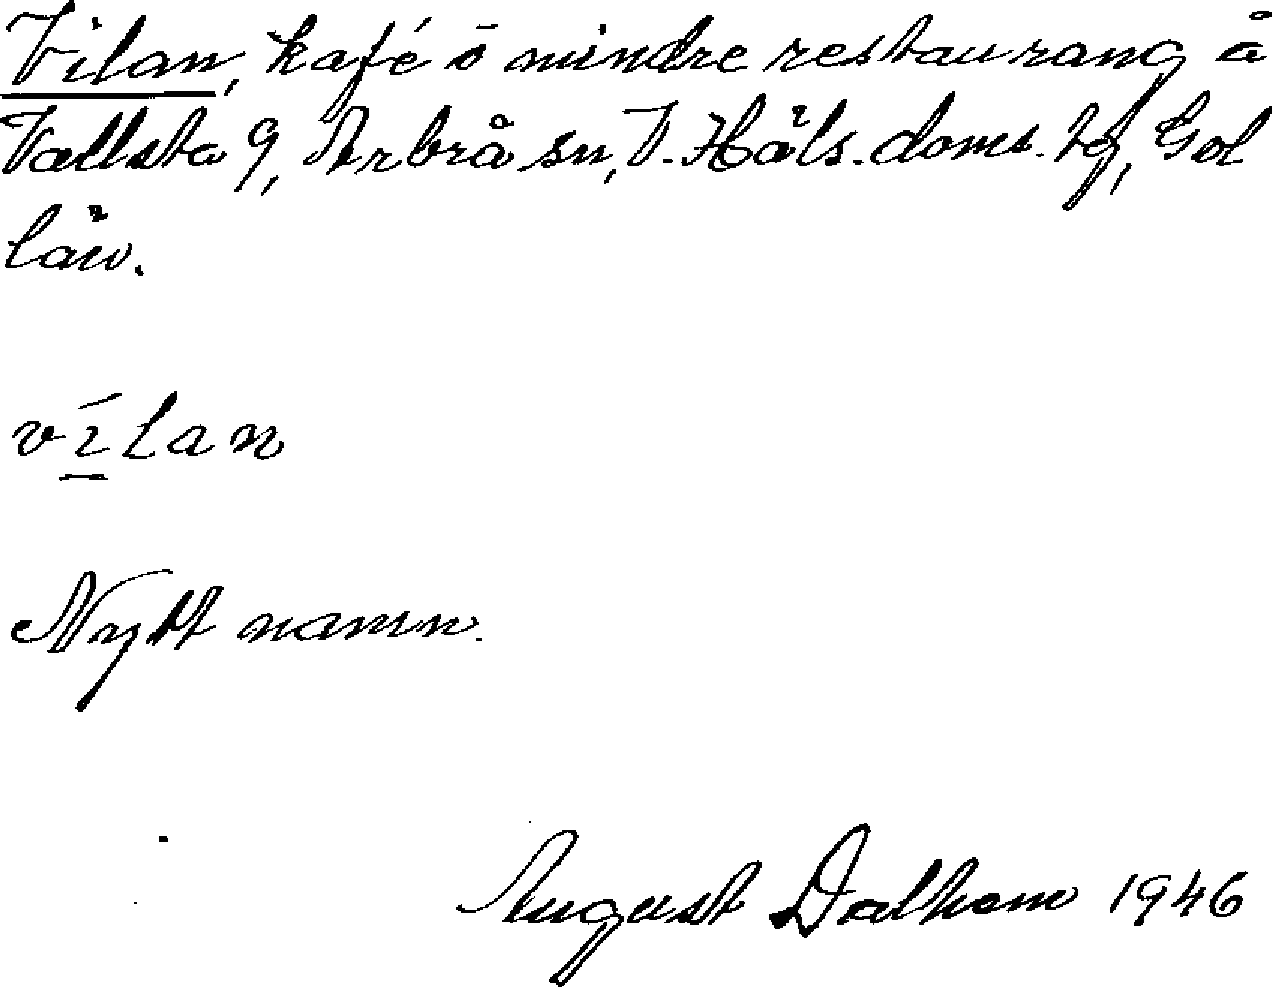 Vilan, kafé o mindre restaurang å
Vallsta 9, Arbrå sn, V. Häls. doms. tg, Gvl
län.
vílan
Nytt namn.
August Dalhem 1946